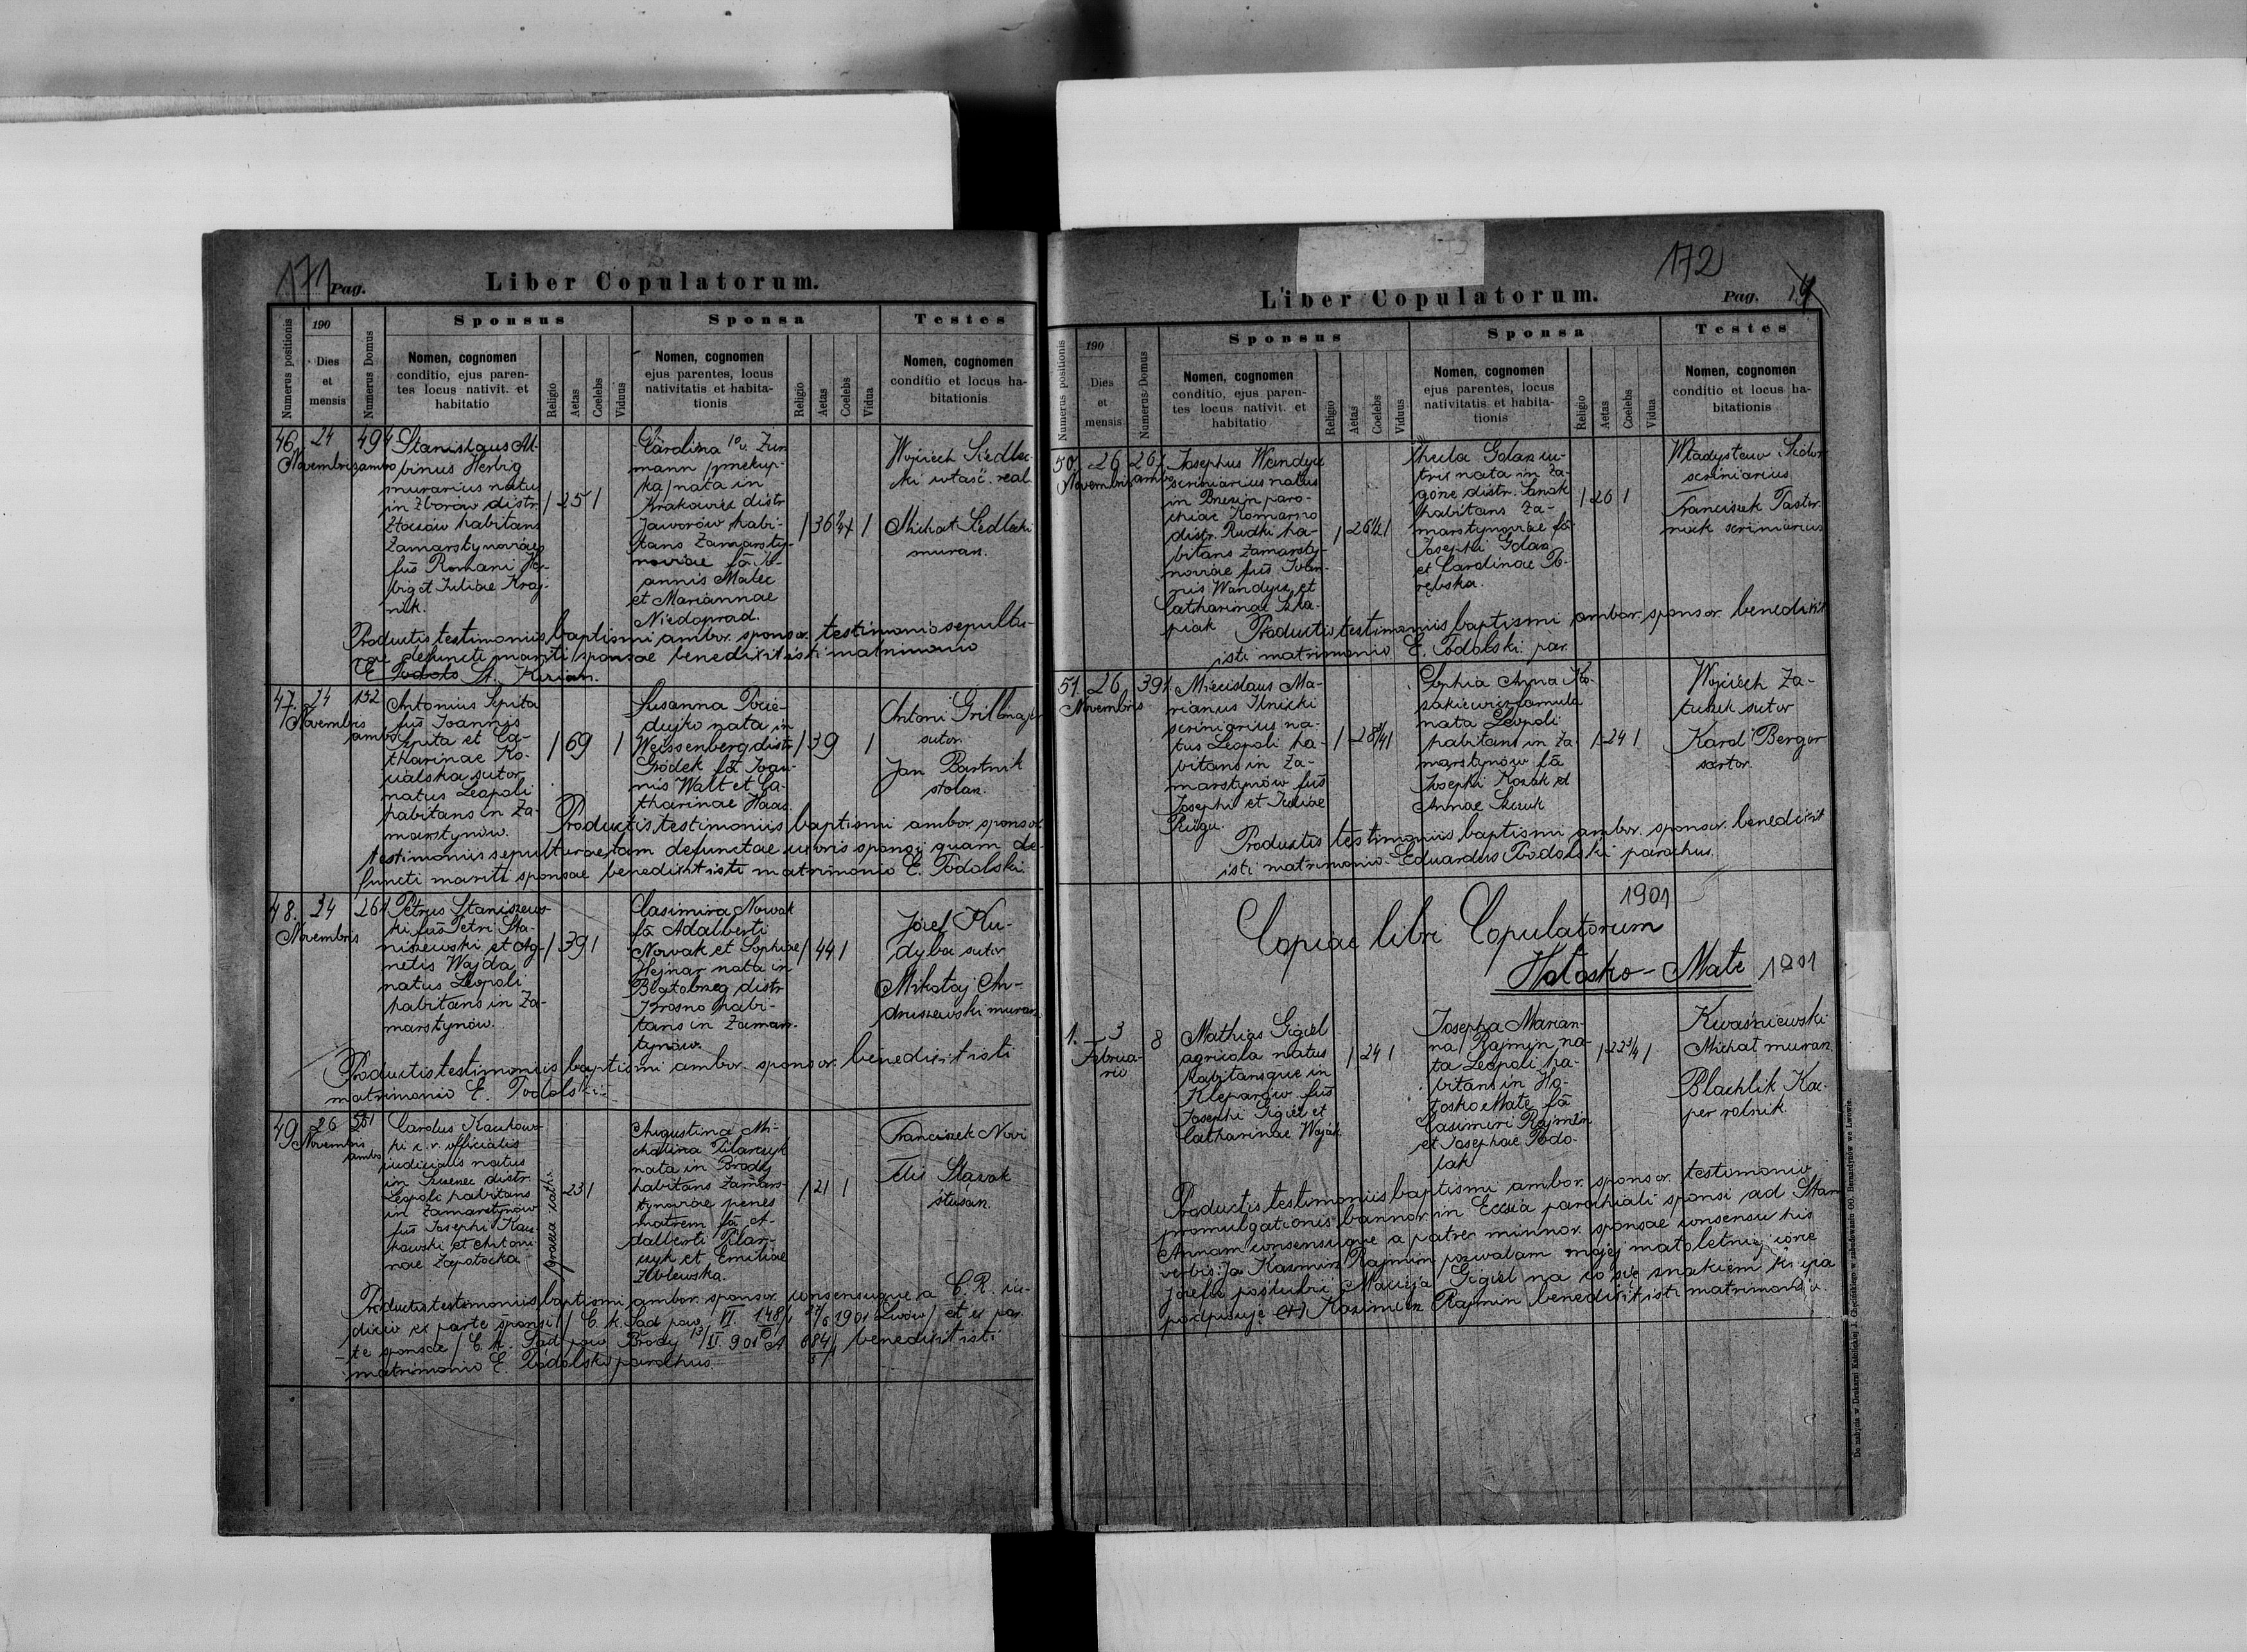 171 Pag.
Liber Copulatorum.
Numerus positionis
190
Dies
et
mensis
Numerus Domus
Sponsus
Nomen, cognomen
conditio, ejus paren-
tes locus nativit. et
habitatio
Religio
Aetas
Coelebs
Viduus
Sponsa
Nomen, cognomen
ejus parentes, locus
nativitatis et habita-
tionis
Religio
Aetas
Coelebs
Vidua
Testes
Nomen, cognomen
conditio et locus ha-
bitationis
46. 24
Novembris
494
ambo
Stanislaus Al-
binus Herbig
murarius natus
in Zborów distr.
Złoczów habitans
Zamarstynoviae
fus Romani Her-
big et Juliae Kraj-
nik.
25
Carolina 1o v. Zur
mann
nata in
Krakowiec distr
Jaworów habi-
tans Zamarsty-
noviae fa Jo-
annis Malec
et Mariannae
Niedoprad.
36
Wojciech Siedlec-
ki właść. real.
Michał Siedlecki
murarz.
Productis testimoniis baptismi ambor. sponsor. testimonio sepultu-
rae defuncti mariti sponsae benedixit isti matrimonio
47. 24
Novembris
152
ambo
Antonius Szpita
fus Joannis
Szpita et Ca-
tharinae Ko-
walska sutor
natus Leopoli
habitans in Za-
marstynów.
69
Susanna
nata in
Weissenberg distr
Gródek fa Joan-
nis Walt et Ca-
tharinae Haas
39
Antoni
sutor.
Jan Bartnik
stolarz.
Productis testimoniis baptismi ambor sponsor
testimoniis sepulturae tam defunctae uxoris sponsi quam de-
functi mariti sponsae benedixit isti matrimonio E. Podolski.
48. 24
Novembris
261
Petrus Staniszews-
ki fus Petri Sta-
niszewski et Ag-
netis Wajda
natus Leopoli
habitans in Za-
marstynów.
39
Casimira Nowak
fa Adalberti
Nowak et Sophiae
Hejnar nata in
Białobrzeg distr
Krosno habi-
tans in Zamars-
tynów.
44
Józef Ku-
dyba sutor
Mikołaj An-
druszewski murarz
Productis testimoniis baptismi ambor. sponsor. benedixit isti
matrimonio E. Podolski
49. 26
Novembris
ambo
Carolus Kaczkows-
ki c. r. officialis
judicialis natus
in distr.
Leopoli habitans
in Zamarstynów
fus Josephi Kacz-
kowski et Antoni-
nae Zapotocka
graeca cath.
23
Augustina Mi-
chalina Pilarczyk
nata in Brody
habitans Zamars-
tynoviae penes
matrem fa A-
dalberti Pilar-
czyk et Emiliae
21
Franciszek Nowi
Felis
ślusarz.
Productis testimoniis baptismi ambor. sponsor. consensuque a C. R. ju-
dicio ex parte sponsi / C. k. Sąd pow. VI. 148/1 1901 Lwów / et ex par
te sponsae / C. k. Sąd pow. Brody 901 A 684/ benedixit isti
matrimonio E. Podolski parochus
172
Liber Copulatorum.
Pag.
Numerus positionis
190
Dies
et
mensis
Numerus Domus
Sponsus
Nomen, cognomen
conditio, ejus paren-
tes locus nativit. et
habitatio
Religio
Aetas
Coelebs
Viduus
Sponsa
Nomen, cognomen
ejus parentes, locus
nativitatis et habita-
tionis
Religio
Aetas
Coelebs
Vidua
Testes
Nomen, cognomen
conditio et locus ha-
bitationis
50. 26
Novembris
261
ambo
Josephus Wandycz
scriniarius natus
in paro-
chiae Komarno
distr. Rudki ha-
bitans Zamarsty-
noviae fus Joan-
nis Wandycz et
Catharinae Szla-
piak
26 1/2
Thecla Golarz
nata in Za-
górze distr. Sanok
habitans Za-
marstynoviae fa
Josephi Golarz
et Carolinae Po-
rębska.
26
Władysław Sidor
scriniarius
Franciszek Paster-
nak scriniarius
Productis testimoniis baptismi ambor. sponsor. benedixit
isti matrimonio E. Podolski par.
51. 26
Novembris
391
Miecislaus Ma-
rianus Ilnicki
scriniarius na-
tus Leopoli ha-
bitans in Za-
marstynów fus
Josephi et Juliae
28 1/4
Sophia Anna Ko-
zakiewicz famula
nata Leopoli
habitans in Za
marstynów fa
Josephi Kozak et
Annae
24
Wojciech Za-
tuzek sutor
Karol Berger
sartor.
Productis testimoniis baptismi ambor. sponsor. benedixit
isti matrimonio. Eduardus Podolski parochus.
1901
Copiae libri Copulatorum
Hołosko-Małe 1901
1. 3
Februa-
rio
8
Mathias Gigiel
agricola natus
habitansque in
Kleparów fus
Josephi Gigiel et
Catharinae Wojak
24
Josepha Marian-
na Rajmin na-
ta Leopoli ha-
bitans in Ho-
łosko Małe fa
Casimiri Rajmin
et Josephae Podo-
lak
22 3/4
Kwaśniewski
Michał murarz
Blachlik Kac-
per rolnik.
Productis testimoniis baptismi ambor. sponsor. testimonio
promulgationis bannor. in Eccsia parochiali sponsi ad Stam
Annam consensuque a patre minnor. sponsae consensu his
verbis: Ja Kazimirz Rajmin pozwalam mojej małoletniej córce
Józefie poślubić Macieja Gigiel na co się znakiem krzyża
podpisuję (+) Kazimierz Rajmin benedixit isti matrimonio
Do nabycia w Drukarni Katolickiej J. Chęcińskiego w zabudowaniu OO. Bernardynów we Lwowie.